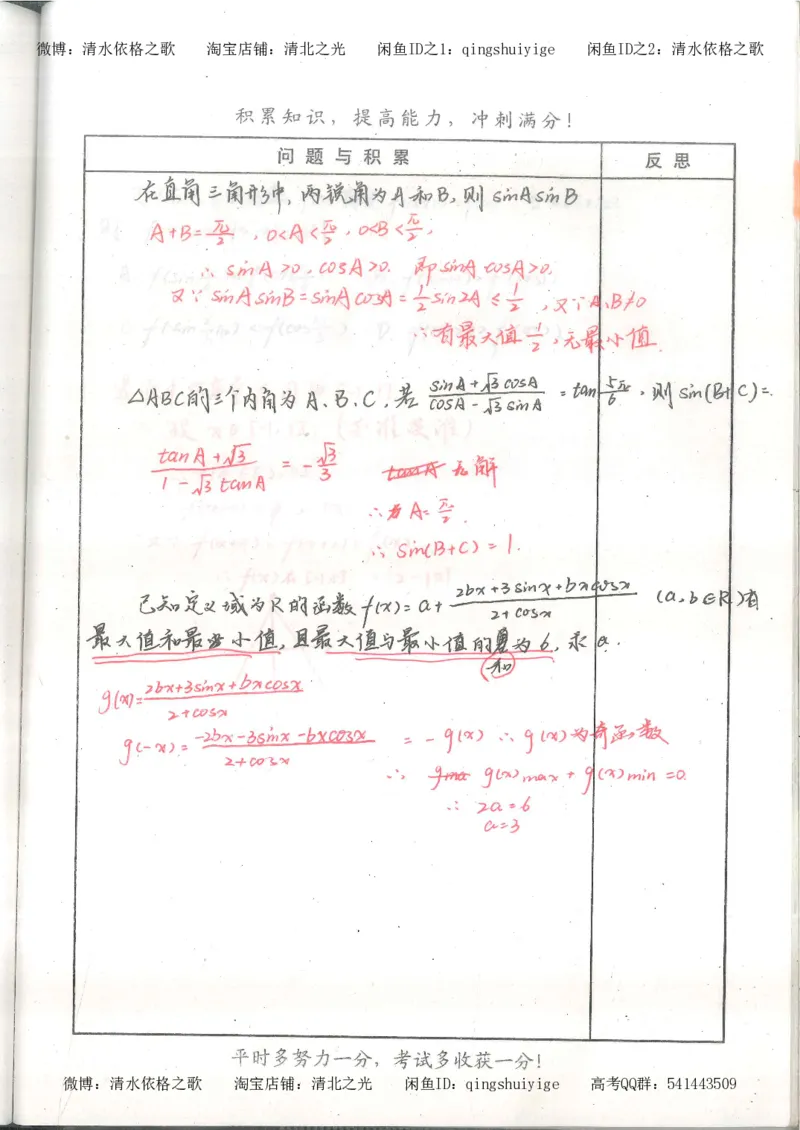 微博：清水依格之歌 淘宝店铺：清北之光 闲鱼ID之1：qingshuiyige 闲鱼ID之2：清水依格之歌
积累知识，提高能力，冲刺满分！
问题与积累 反思
在直角三角形中，两锐角为A和B，则sinAsinB
A+B=π/2，0<A<π/2，0<B<π/2，
∴ sinA>0，cosA>0. 即sinA cosA>0.
又∵ sinAsinB=sinAcosA=1/2sin2A≤1/2，又∵A、B≠0
∴有最大值1/2，无最小值.
△ABC的三个内角为A、B、C，若 (sinA+√3cosA)/(cosA-√3sinA)=tan5π/6，则sin(B+C)=.
(tanA+√3)/(1-√3tanA)=-√3/3 tanA 无解
∴ A=π/2.
∴ sin(B+C)=1.
已知定义域为R的函数f(x)=a+(2bx+3sinx+bxcosx)/(2+cosx) (a,b∈R)有
最大值和最小值，且最大值与最小值的为6，求a.
和
g(x)=(2bx+3sinx+bxcosx)/(2+cosx)
g(-x)=(-2bx-3sinx-bxcosx)/(2+cosx)=-g(x) ∴g(x)为奇函数
∴ g(x)max+g(x)min=0.
∴ 2a=6
a=3
平时多努力一分，考试多收获一分！
微博：清水依格之歌 淘宝店铺：清北之光 闲鱼ID：qingshuiyige 高考QQ群：541443509